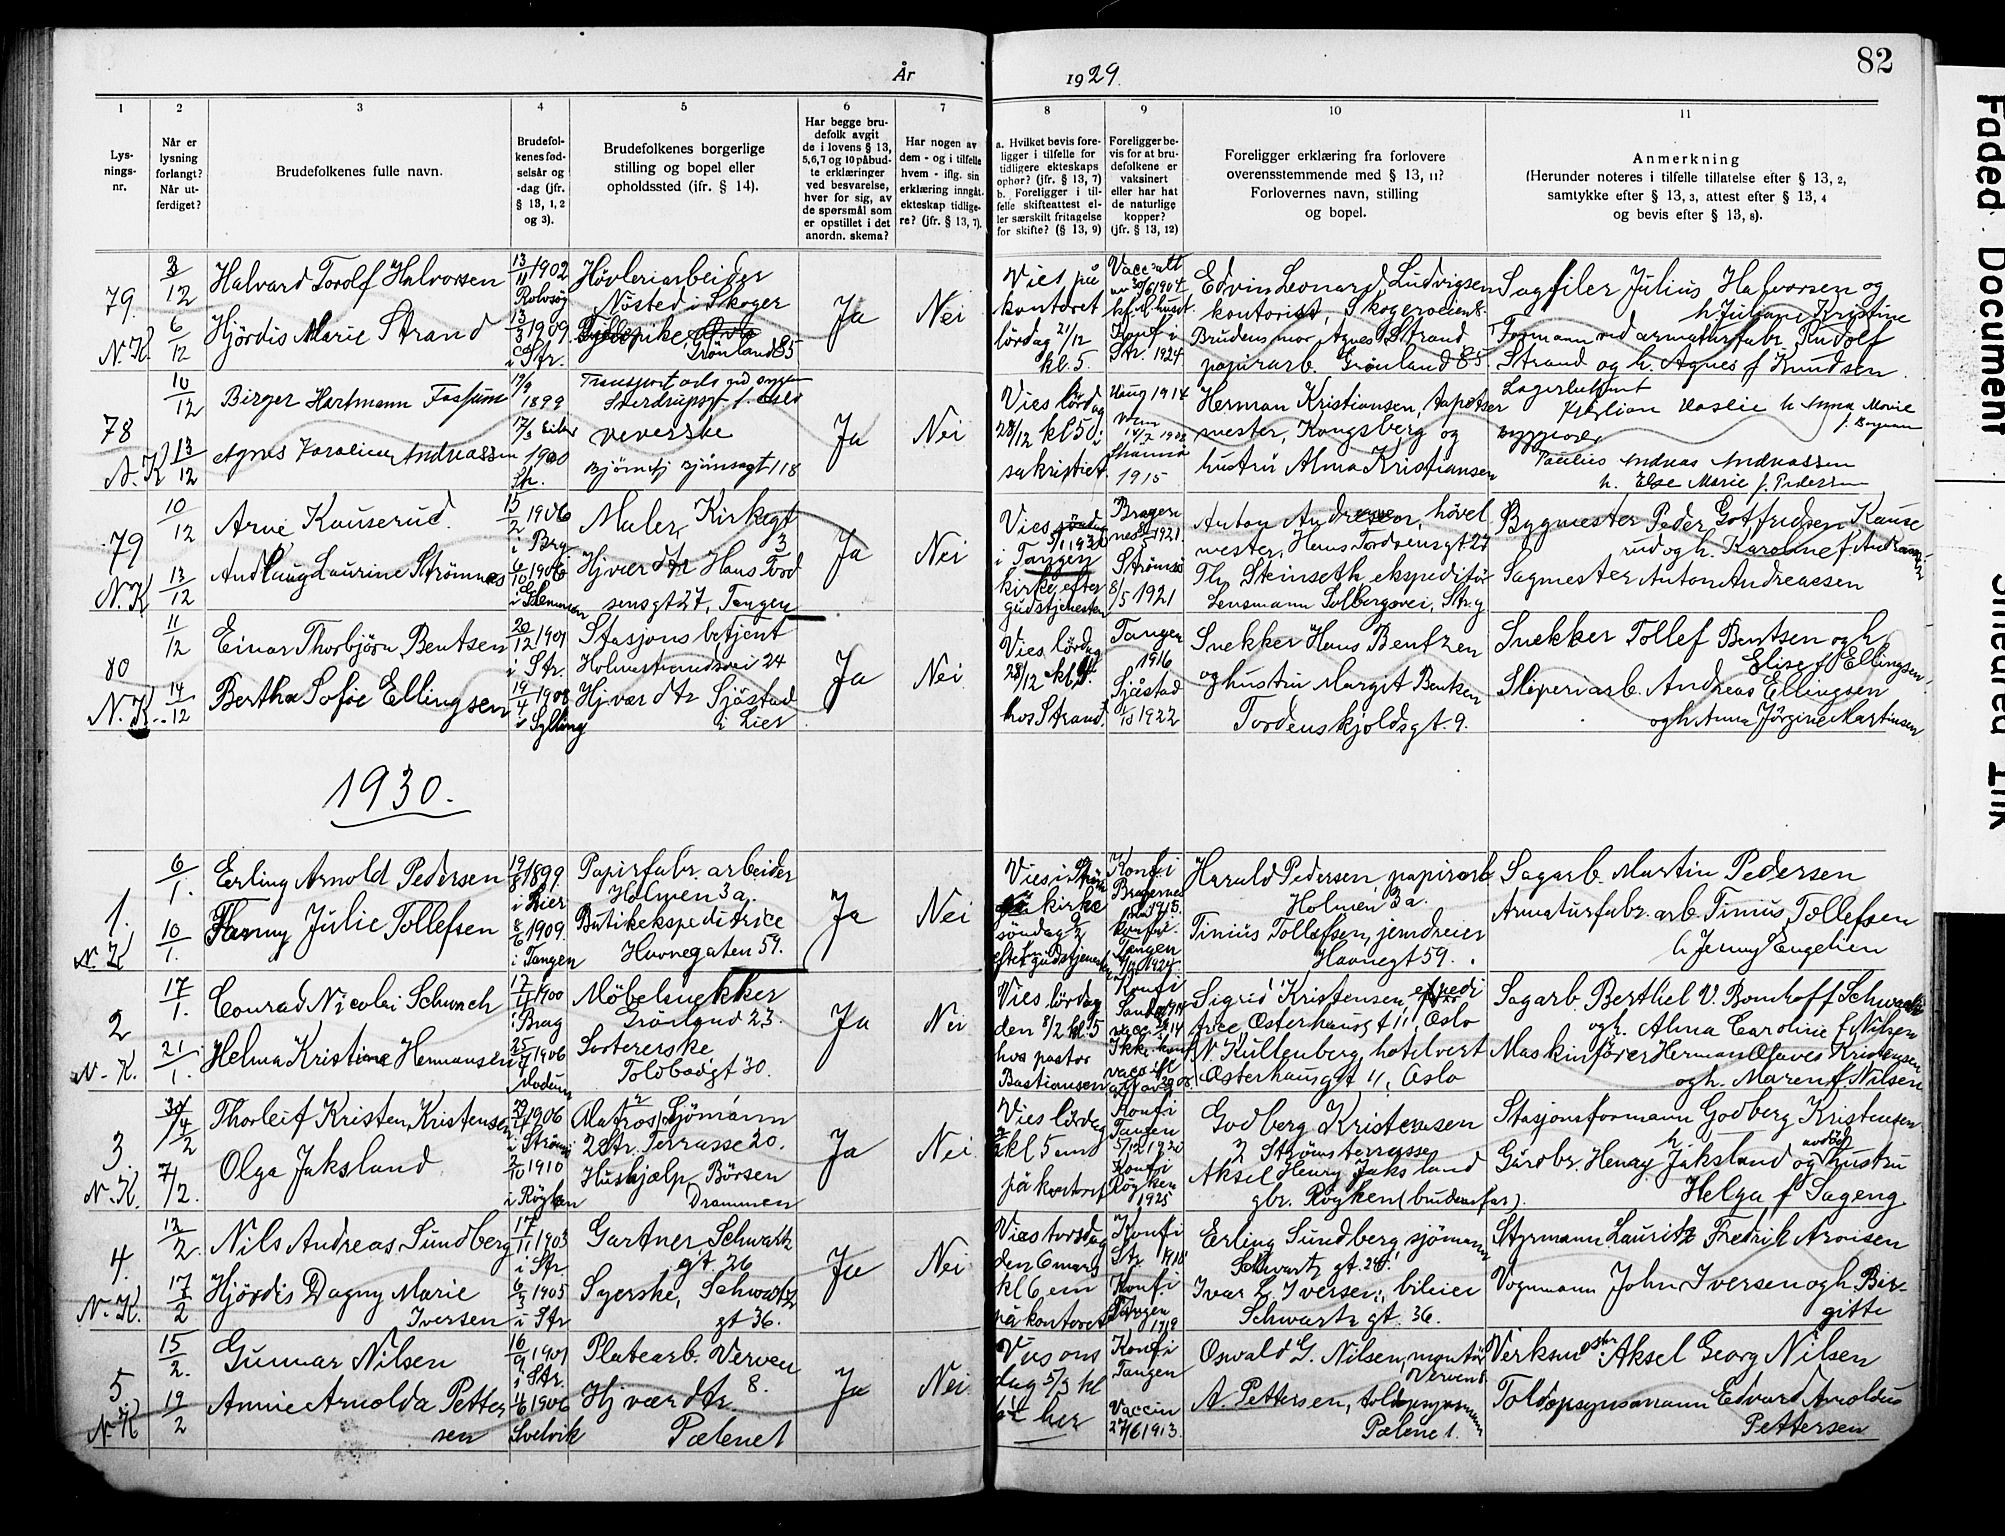 82
År 1929.
1
Lys-
nings-
nr.
2
Når er
lysning
forlangt?
Når ut-
ferdiget?
3
Brudefolkenes fulle navn.
4
Brudefol-
kenes fød-
selsår og
-dag (jfr.
§ 13, 1, 2
og 3).
5
Brudefolkenes borgerlige
stilling og bopel eller
opholdssted (jfr. § 14).
6
Har begge bru-
defolk avgit
de i lovens § 13,
5,6,7 og 10 påbud-
te erklæringer
ved besvarelse,
hver for sig, av
de spørsmål som
er opstillet i det
anordn. skema?
7
Har nogen av
dem - og i tilfelle
hvem - iflg. sin
erklæring inngåt
ekteskap tidlige-
re? (jfr. § 13, 7).
8
a. Hvilket bevis fore-
ligger i tilfelle for
tidligere ekteskaps
ophør? (jfr. § 13, 7)
b. Foreligger i til-
felle skifteattest el-
ler særskilt fritagelse
for skifte? (§ 13, 9)
9
Foreligger be-
vis for at bru-
defolkene er
vaksinert
eller har hat
de naturlige
kopper?
(jfr. § 13, 12)
10
Foreligger erklæring fra forlovere
overensstemmende med § 13, 11?
Forlovernes navn, stilling
og bopel.
11
Anmerkning
(Herunder noteres i tilfelle tillatelse efter § 13, 2,
samtykke efter § 13, 3, attest efter § 13, 4
og bevis efter § 13, 8).
79
N.K.
3/12
6/12
Halvard Torolf Halvorsen
Hjördis Marie Strand
13/11 1902
Rolvsøy
13/3 1909
i Str.
Høvleriarbeider
Nösted i Skoger
Grönland 85
Ja
Nei
Viet på
kontoret
lördag 21/12
kl. 5
Konf i
Str. 1924
Edvin Leonard Ludvigsen
kontorist, Skogerveien 8.
Brudens mor Agnes Strand
papirarb. Grönland 85
Sagfiler Julius Halvorsen og
h Juliane Kristine
Formann ved armaturfabr. Rudolf
Strand og h. Agnes f Knudsen
78
N.K
10/12
13/12
Birger Hartmann Fossum
Agnes Karoline Andreassen
19/9
1899
1900
Str.
veverske
118
Ja
Nei
Vies lördag
28/12 kl 5 i
sakristiet
Haug 1914
1915
Herman Kristiansen, tapetser
mester, Kongsberg og
hustru Alma Kristiansen
Paulius Andreas Andreassen
h. Else Marie f. Pedersen
79
N.K
10/12
13/12
Arne Kauserud.
Andlaug Laurine Strømnes
15/2 1906
i Brg
6/10 1906
Maler, Kirkegt
3
Hj vær dtr Hans Tord
sensgt 27, Tangen
Ja
Nei
Vies
i Tangen
kirke efter
gudstjenesten
Strømsö
8/5 1921
Anton Andresen, hövel
mester, Hans Tordsensgt. 27
Th. Steinseth, ekspeditör
Lensmann Solbergsvei, Str.g
Bygmester Peder Gotfridsen Kause
rud og h. Karoline f Andreassen
Sagmester Anton Andreassen
80
N.K.
11/12
14/12
Einar Thorbjörn Bentsen
Bertha Sofie Ellingsen
20/12 1901
i Str.
19/4 1908
i Sylling
Stasjonsbetjent
Holmestrandsvei 24
Hj vær dtr Sjåstad
i Lier
Ja
Nei
Vies lördag
28/12 kl
hos Strand
Tangen
1916
Sjåstad
1/10 1922
Snekker Hans Bentzen
og hustru Margit Bentsen
Tordenskjoldsgt. 9.
Snekker Tollef Bentsen og h
Elise f Ellingsen
Sliperiarb. Andreas Ellingsen
og h Anna Jörgine Martinsen
1930.
1.
N.K
6/1.
10/1.
Erling Arnold Pedersen
Fanny Julie Tollefsen
19/8 1899
i Lier
8/6 1909.
i Tangen
Papirfabr. arbeider
Holmen 3 a.
Butikekspeditrice
Havnegaten 59.
Ja
Nei
Vies i
kirke
söndag
efter gudstjenesten
Konf i
Bragernes
1915.
konf i
Tangen
1924
Harald Pedersen papirarb
Holmen 3 a.
Tinius Tollefsen, jerndreier
Havnegt 59.
Sagarb. Martin Pedersen
Armaturfabr. arb. Tinius Tollefsen
h Jenny Engelien
2
N.K.
17/1.
21/1.
Conrad Nicolai Schwach
Helma Kristine Hermansen
17/11 1900
i Brag
25/7 1906
Modum
Möbelsnekker
Grönland 23.
Sortererske
Toldbodgt 30.
Ja
Nei
Vies lördag
den 8/2 kl. 5
hos pastor
Bastiansen
Konf i
Ikke konf
Sigrid Kristensen, ekspedi
trice, Osterhausgt 11, Oslo
N. Kullenberg, hotelvert
Osterhausgt 11, Oslo
Sagarb. Berthel V. Bomhoff Schwach
og h. Alma Caroline f Nilsen
Maskinförer Herman Olaves Kristensen
og h. Maren f. Nilsen
3
N.K.
4/2
7/2.
Thorleif Kristen Kristensen
Olga Jaksland
29/7 1906
i Strömsö
2/10 1910
i Röyken
Matros, Sjömann
2 Str. Terrasse 20.
Hushjælp, Börsen
Drammen
Ja
Nei
Vies lördag
kl 5 em
på kontoret
Konfi
Tangen
5/12 1920
Konfi
Röyken
1925
Godberg Kristensen
2 Strömsterrasse
Aksel Henry Jaksland
gbr. Röyken (brudens far).
Stasjonsformann Godberg Kristensen
Gårdbr. Henry Jaksland og avdöde hustru
Helga f Sageng
4.
N.K.
12/2.
17/2
Nils Andreas Sundberg
Hjördis Dagny Marie
Iversen
17/11 1903
i Str
6/3 1905
i Str
Gartner, Schwartz
gt. 26
Syerske, Schwartz
gt 36.
Ja
Nei
Vies torsdag
den 6 mars
kl 6 em
på kontoret
Konfi
Str. 1918
Konfi
Tangen
1919
Erling Sundberg sjömann
Schwartz gt. 26
Ivar L Iversen, bileier
Schwartz gt. 36.
Styrmann Lauritz Fredrik Arvisen
Vognmann John Iversen og h Bir-
gitte
5
N.K
15/2.
19/2
Gunnar Nilsen
Annie Arnolda Petter
sen
16/9 1901
i Str.
4/6 1906
Svelvik
Platearb. Verven
8.
Hj vær dtr
Pælene 1
Ja
Nei
Vies ons
dag 5/3 kl
her
Konfi
Tangen
Vaccin
27/6 1913.
Oswald G. Nilsen, montör
Verven 8
A. Pettersen, toldopsynsmann
Pælene 1.
Verksmester Aksel Georg Nilsen
Toldopsynsmann Edvard Arnoldus
Pettersen
Faded Document
Smeared Ink